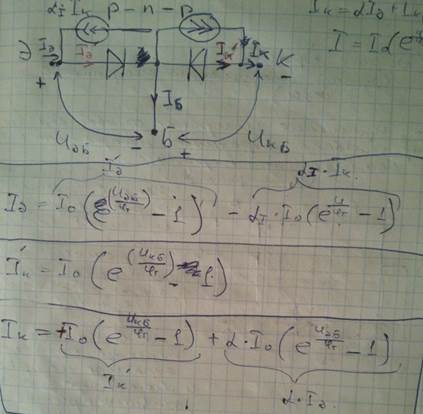 α_I I_к p-n-p I_к = αI_э + I_к
I = I_0(e
Э I_э I_э I_к' I_к К
+ -
I_Б
U_эБ - Б + U_кБ
I_э' α_I · I_к
I_э = I_0 (e^(U_эБ/φ_т) - 1) - α_I · I_0 (e^(U/φ_т) - 1)
I_к' = I_0 (e^(U_кБ/φ_т) - 1)
I_к = +I_0 (e^(U_кБ/φ_т) - 1) + α · I_0 (e^(U_эБ/φ_т) - 1)
I_к' α · I_э